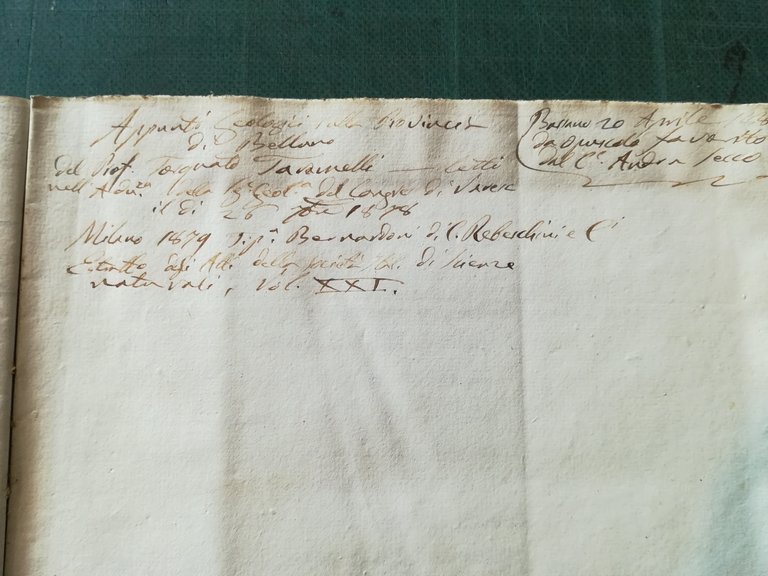 Appunti Geologici sulla Provincia
di Belluno
del Prof. Torquato Taramelli — letti
nell'Adnza della Geol. del Congr. di Varese
il dì 26 7bre 1878
Milano 1879 Tip. Bernardoni di C. Rebeschini e C
Estratto dagli Atti della Società Ital. di Scienze
naturali, vol. XXI.
Bassano 20 Aprile
da opuscolo favorito
dal C. Andrea Secco